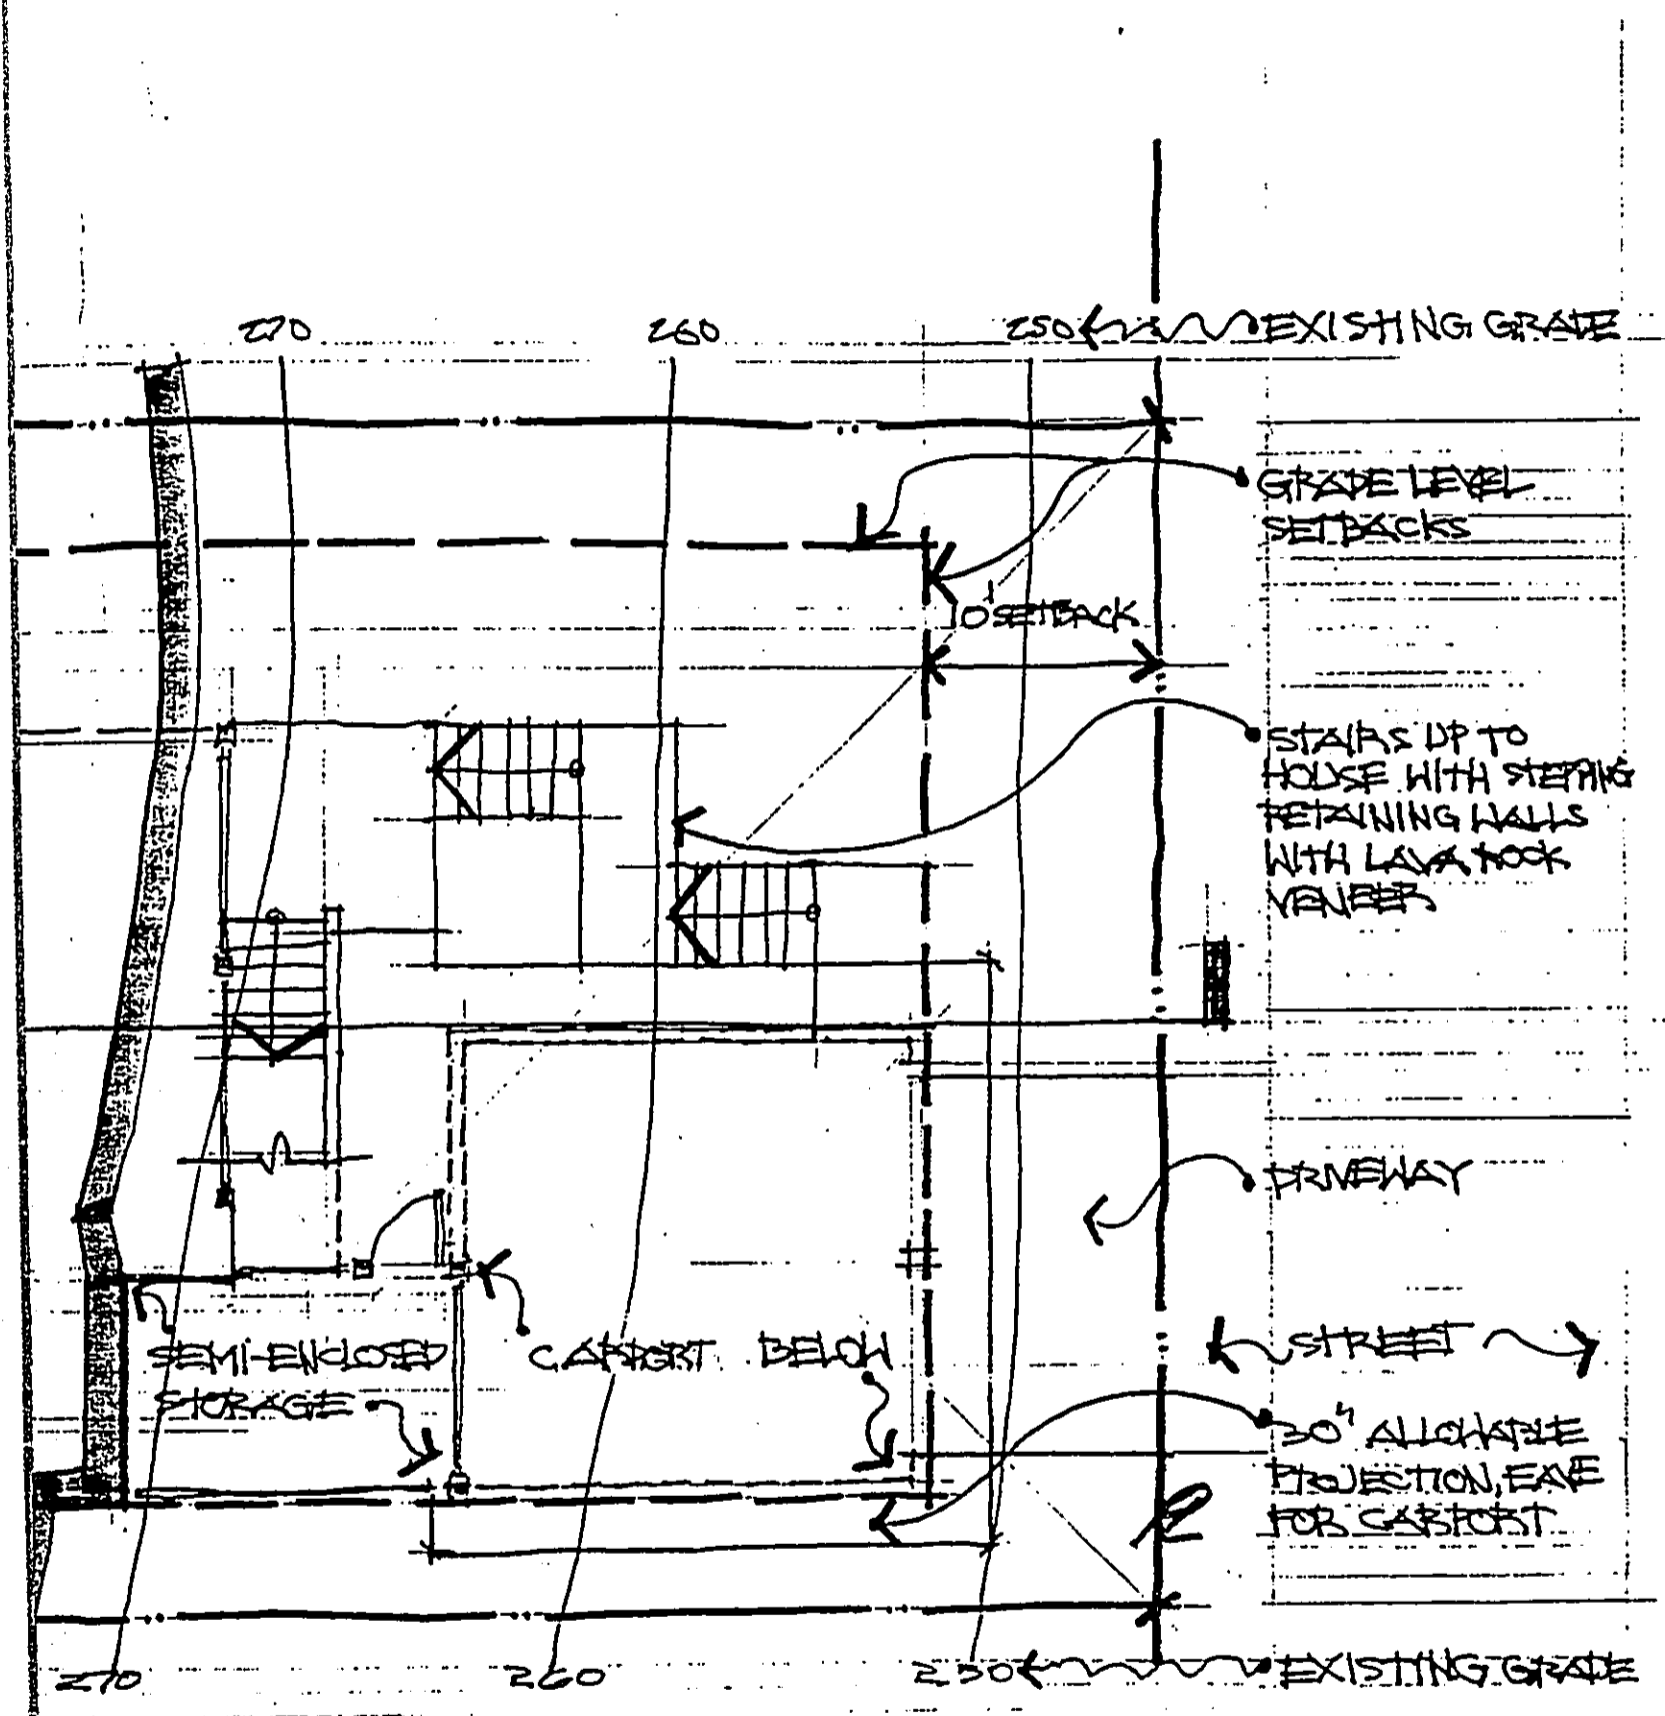 270 260 250 EXISTING GRADE
GRADE LEVEL
SETBACKS
10' SETBACK
STAIRS UP TO
HOUSE WITH STEPPING
RETAINING WALLS
WITH LAVA ROCK
VENEER
DRIVEWAY
STREET
SEMI-ENCLOSED
STORAGE
CARPORT BELOW
30" ALLOWABLE
PROJECTION, EAVE
FOR CARPORT
270 260 250 EXISTING GRADE